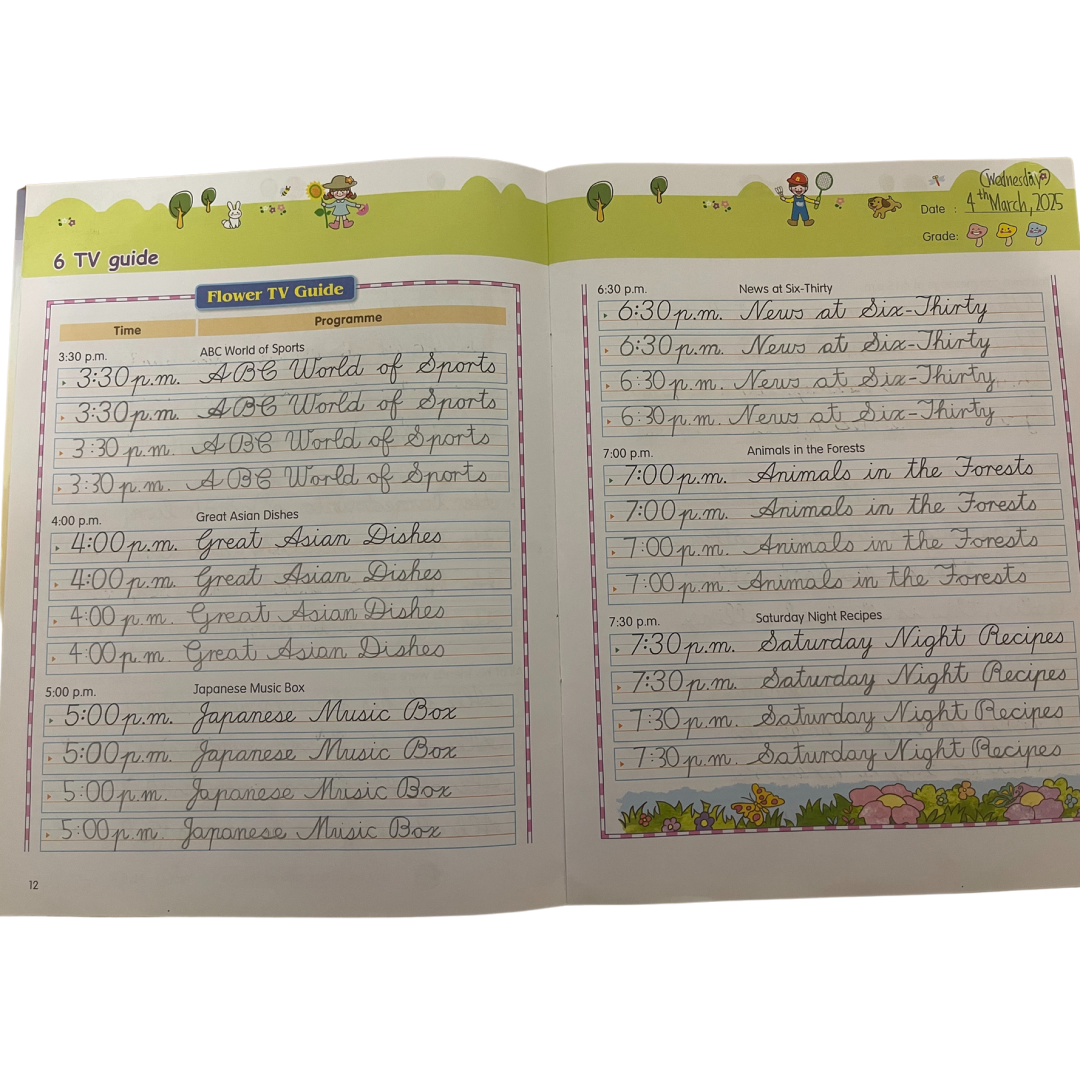 6 TV guide
Flower TV Guide
Time Programme
3:30 p.m. ABC World of Sports
3:30 p.m. ABC World of Sports
3:30 p.m. ABC World of Sports
3:30 p.m. ABC World of Sports
3:30 p.m. ABC World of Sports
4:00 p.m. Great Asian Dishes
4:00 p.m. Great Asian Dishes
4:00 p.m. Great Asian Dishes
4:00 p.m. Great Asian Dishes
4:00 p.m. Great Asian Dishes
5:00 p.m. Japanese Music Box
5:00 p.m. Japanese Music Box
5:00 p.m. Japanese Music Box
5:00 p.m. Japanese Music Box
5:00 p.m. Japanese Music Box
12
(Wednesday)
Date : 4th March, 2025
Grade:
6:30 p.m. News at Six-Thirty
6:30 p.m. News at Six-Thirty
6:30 p.m. News at Six-Thirty
6:30 p.m. News at Six-Thirty
6:30 p.m. News at Six-Thirty
7:00 p.m. Animals in the Forests
7:00 p.m. Animals in the Forests
7:00 p.m. Animals in the Forests
7:00 p.m. Animals in the Forests
7:00 p.m. Animals in the Forests
7:30 p.m. Saturday Night Recipes
7:30 p.m. Saturday Night Recipes
7:30 p.m. Saturday Night Recipes
7:30 p.m. Saturday Night Recipes
7:30 p.m. Saturday Night Recipes